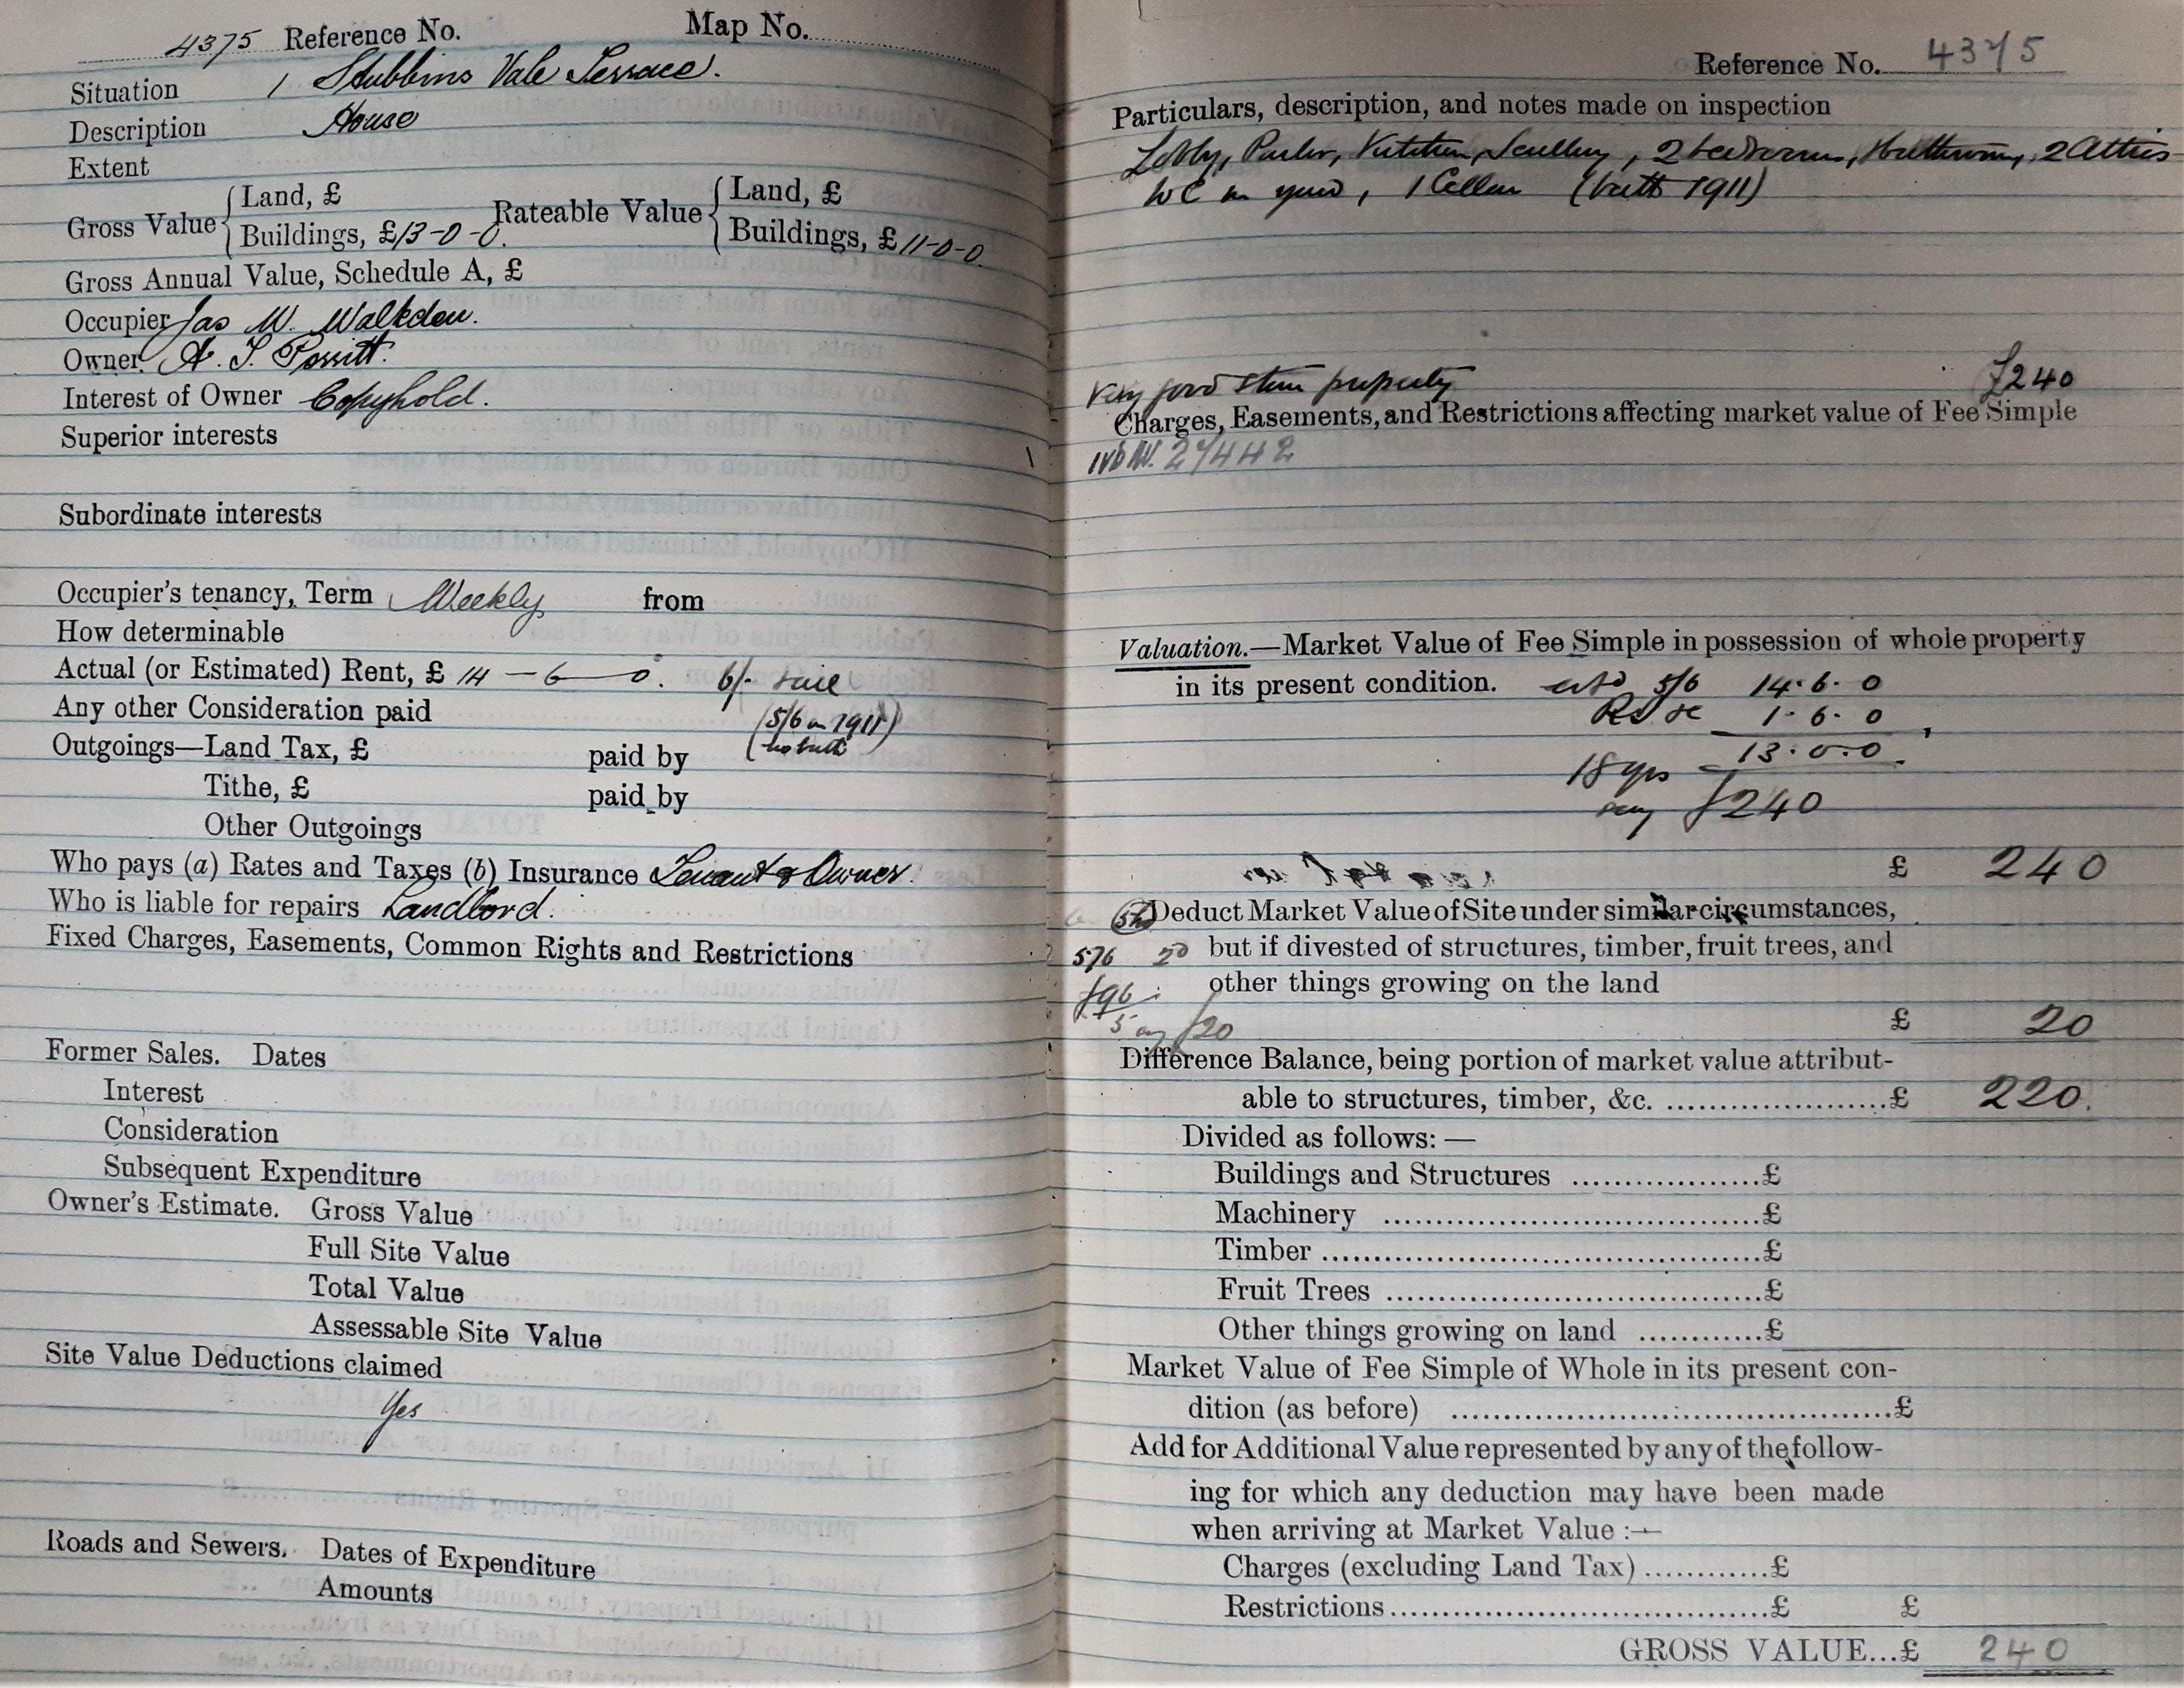 4375 Reference No. Map No.
Situation 1 Stubbins Vale Terrace.
Description House
Extent
Gross Value { Land, £
Buildings, £13-0-0. Rateable Value { Land, £
Buildings, £11-0-0.
Gross Annual Value, Schedule A, £
Occupier Jas W. Walkden.
Owner A. T. Porritt.
Interest of Owner Copyhold.
Superior interests
Subordinate interests
Occupier's tenancy, Term Weekly from
How determinable
Actual (or Estimated) Rent, £ 14-6-0. 6/-
Any other Consideration paid (5/6 in 1911)
Outgoings—Land Tax, £ paid by (no bath
Tithe, £ paid by
Other Outgoings
Who pays (a) Rates and Taxes (b) Insurance Tenant & Owner.
Who is liable for repairs Landlord.
Fixed Charges, Easements, Common Rights and Restrictions
Former Sales. Dates
Interest
Consideration
Subsequent Expenditure
Owner's Estimate. Gross Value
Full Site Value
Total Value
Assessable Site Value
Site Value Deductions claimed
Yes
Roads and Sewers. Dates of Expenditure
Amounts
Reference No. 4375
Particulars, description, and notes made on inspection
Lobby, Parlor, Kitchen, Scullery, 2 bedrooms, Bathroom, 2 Attics
WC in yard, 1 Cellar (bath 1911)
Very good stone property £240
Charges, Easements, and Restrictions affecting market value of Fee Simple
27442
Valuation.—Market Value of Fee Simple in possession of whole property
in its present condition. 5/6 14. 6. 0
1. 6. 0
13. 0. 0
18 yrs
say £240
£ 240
Deduct Market Value of Site under similar circumstances,
576 but if divested of structures, timber, fruit trees, and
£96 other things growing on the land
5 say £20
£ 20
Difference Balance, being portion of market value attribut-
able to structures, timber, &c. ......................£ 220.
Divided as follows: —
Buildings and Structures ...................£
Machinery ......................................£
Timber ............................................£
Fruit Trees ......................................£
Other things growing on land ............£
Market Value of Fee Simple of Whole in its present con-
dition (as before) ............................................£
Add for Additional Value represented by any of the follow-
ing for which any deduction may have been made
when arriving at Market Value :—
Charges (excluding Land Tax) ............£
Restrictions ......................................£ £
GROSS VALUE...£ 240